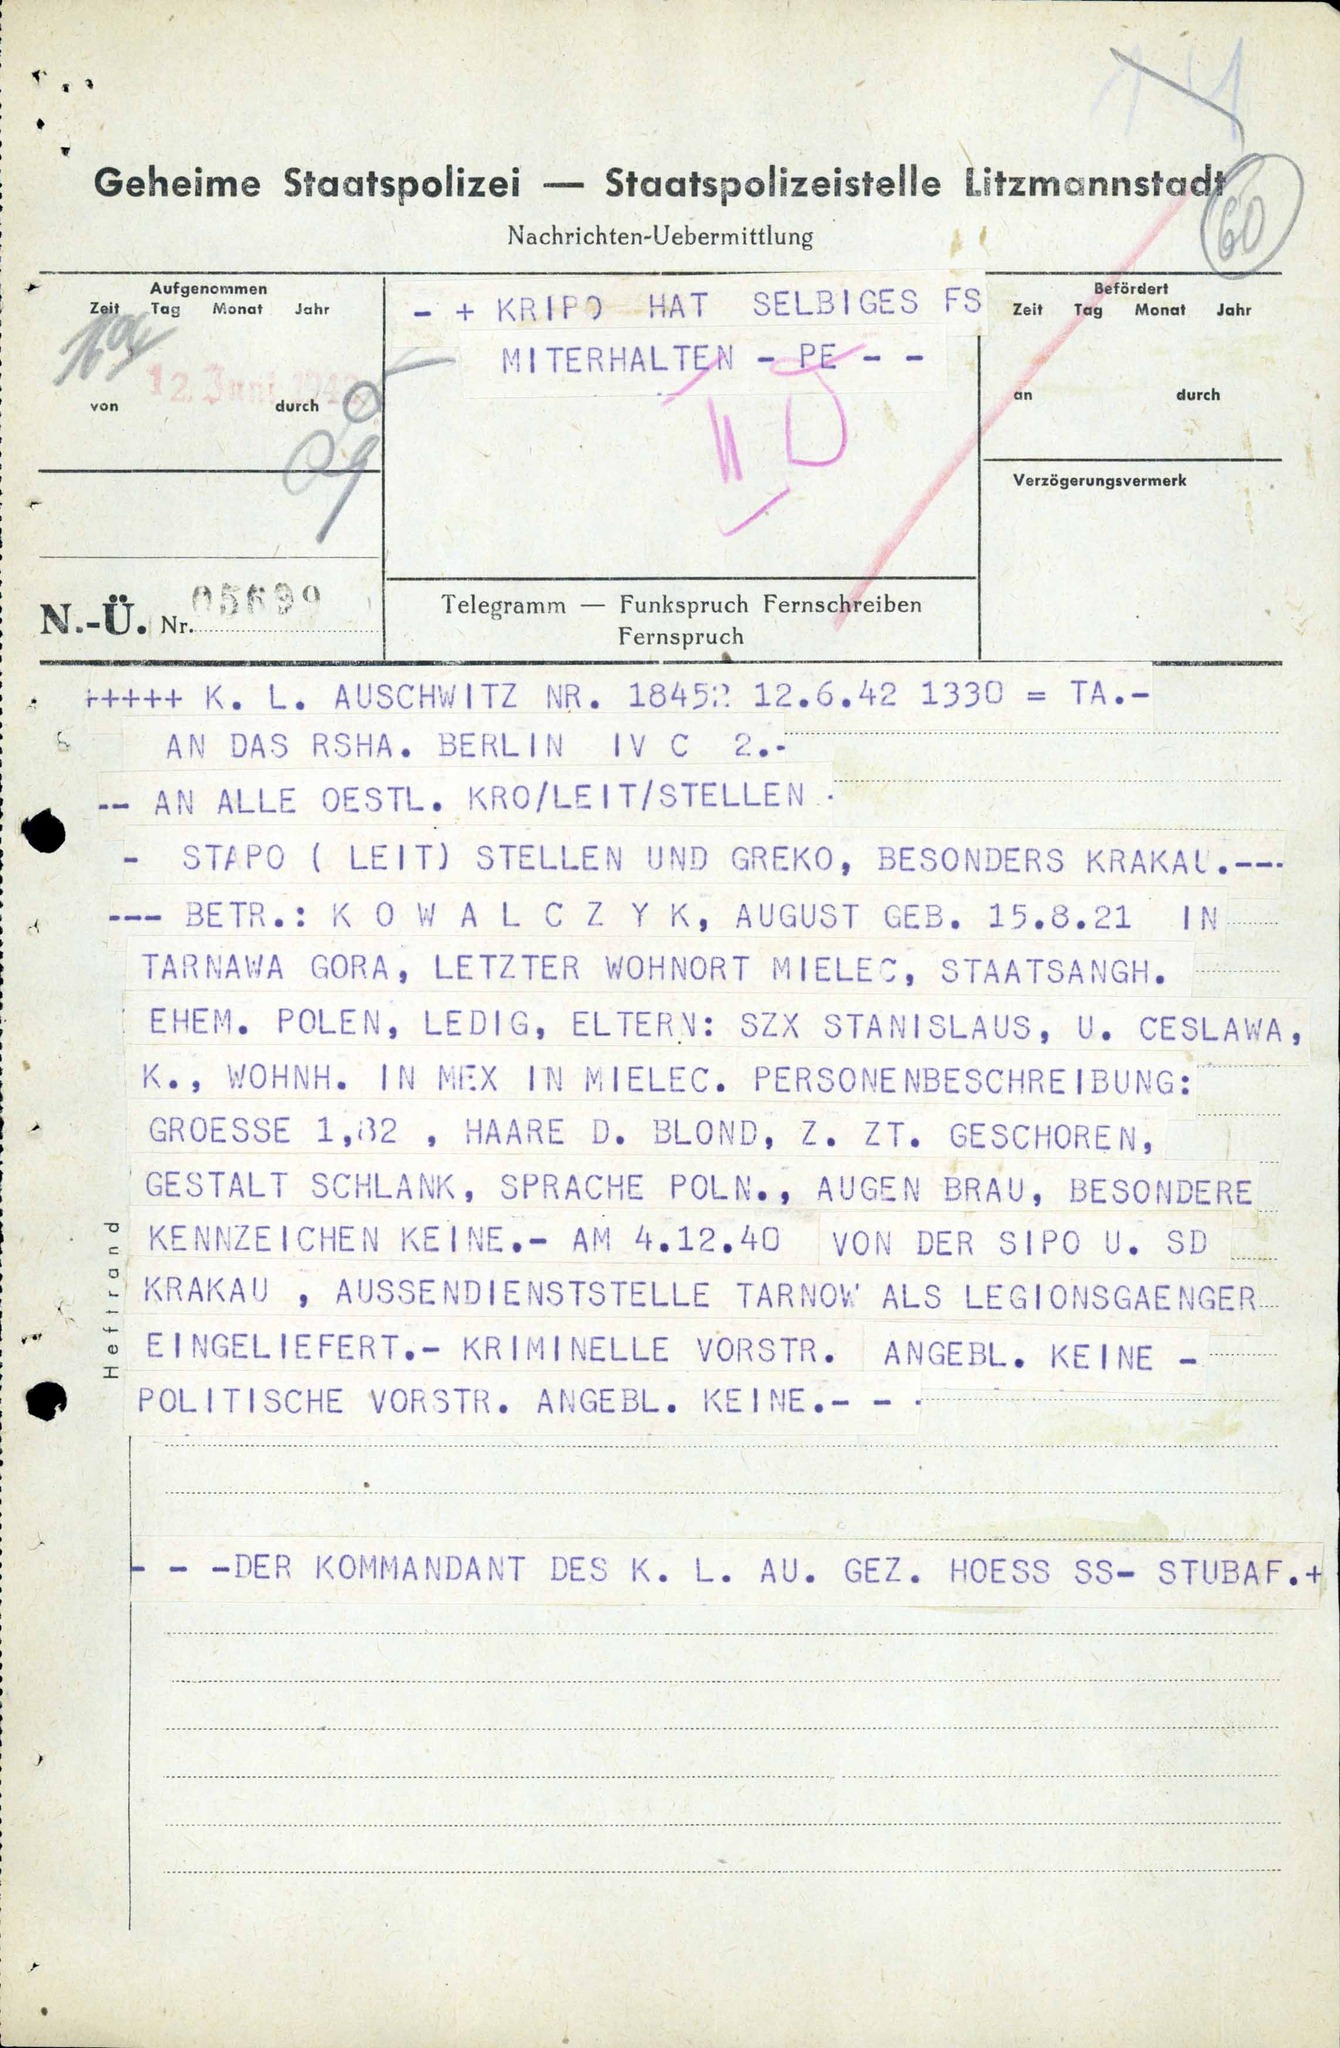 Geheime Staatspolizei — Staatspolizeistelle Litzmannstadt
60
Nachrichten-Uebermittlung
Aufgenommen
Zeit Tag Monat Jahr
12. Juni 1942
von durch
- + KRIPO HAT SELBIGES FS
MITERHALTEN - PE - -
II D
Befördert
Zeit Tag Monat Jahr
an durch
Verzögerungsvermerk
N.-Ü. Nr. 05699
Telegramm — Funkspruch Fernschreiben
Fernspruch
+++++ K. L. AUSCHWITZ NR. 18452 12.6.42 1330 = TA.-
AN DAS RSHA. BERLIN IV C 2.-
-- AN ALLE OESTL. KRO/LEIT/STELLEN .
- STAPO ( LEIT) STELLEN UND GREKO, BESONDERS KRAKAU.---
--- BETR.: K O W A L C Z Y K, AUGUST GEB. 15.8.21 IN
TARNAWA GORA, LETZTER WOHNORT MIELEC, STAATSANGH.
EHEM. POLEN, LEDIG, ELTERN: SZX STANISLAUS, U. CESLAWA,
K., WOHNH. IN MEX IN MIELEC. PERSONENBESCHREIBUNG:
GROESSE 1,82 , HAARE D. BLOND, Z. ZT. GESCHOREN,
GESTALT SCHLANK, SPRACHE POLN., AUGEN BRAU, BESONDERE
KENNZEICHEN KEINE.- AM 4.12.40 VON DER SIPO U. SD
KRAKAU , AUSSENDIENSTSTELLE TARNOW ALS LEGIONSGAENGER
EINGELIEFERT.- KRIMINELLE VORSTR. ANGEBL. KEINE -
POLITISCHE VORSTR. ANGEBL. KEINE.- - .
- - -DER KOMMANDANT DES K. L. AU. GEZ. HOESS SS- STUBAF.+
Heftrand